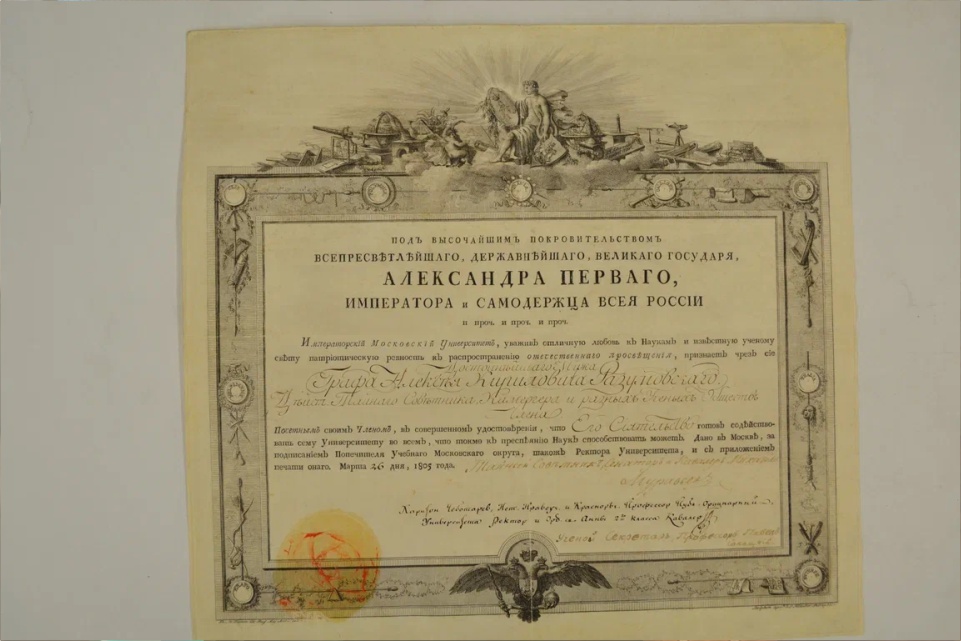 ПОДЪ ВЫСОЧАЙШИМЪ ПОКРОВИТЕЛЬСТВОМЪ
ВСЕПРЕСВѢТЛѢЙШАГО, ДЕРЖАВНѢЙШАГО, ВЕЛИКАГО ГОСУДАРЯ,
АЛЕКСАНДРА ПЕРВАГО,
ИМПЕРАТОРА и САМОДЕРЖЦА ВСЕЯ РОССІИ
и проч. и проч. и проч.
Императорскій Московскій Университетъ, уваживъ отличную любовь къ Наукамъ и извѣстную ученому
свѣту патріотическую ревность къ распространенію отечественнаго просвѣщенія, признаетъ чрезъ сіе
Графа Алексѣя Кириловича Разумовскаго,
Тайнаго Совѣтника Камергера и разныхъ Ученыхъ Обществъ
Члена
Почетнымъ своимъ Членомъ, въ совершенномъ удостовѣреніи, что Его Сіятельство готовъ содѣйство-
вать сему Университету во всемъ, что токмо къ преспѣянію Наукъ способствовать можетъ. Дано въ Москвѣ, за
подписаніемъ Попечителя Учебнаго Московскаго округа, такожъ Ректора Университета, и съ приложеніемъ
печати онаго. Марта 26 дня, 1805 года. Тайный Совѣтникъ Сенаторъ и Кавалеръ
Муравьевъ
Харитон Чеботаревъ, Профессоръ Ординарный
Университета Ректор и Орд. св. Анны 2го класса Кавалеръ
Секретарь, Профессоръ